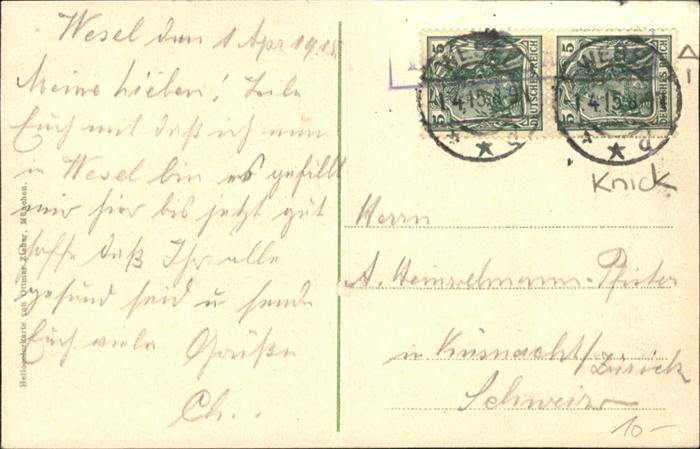 Wesel den 1 Apr 1915
Meine Lieben! Teile
Euch mit daß ich nun
in Wesel bin es gefällt
mir hier bis jetzt gut
hoffe daß Ihr alle
gesund seid u sende
Euch viele Grüße
Ch..
Heliocolorkarte von Ottmar Zieher, München.
5 DEUTSCHES REICH 5
5 DEUTSCHES REICH 5
WESEL
1.4.15.8-9
WESEL
1.4.15.8-9
Knick
Herrn
A. Heinzelmann-Pfister
in Küsnacht/Zürich
Schweiz
10-